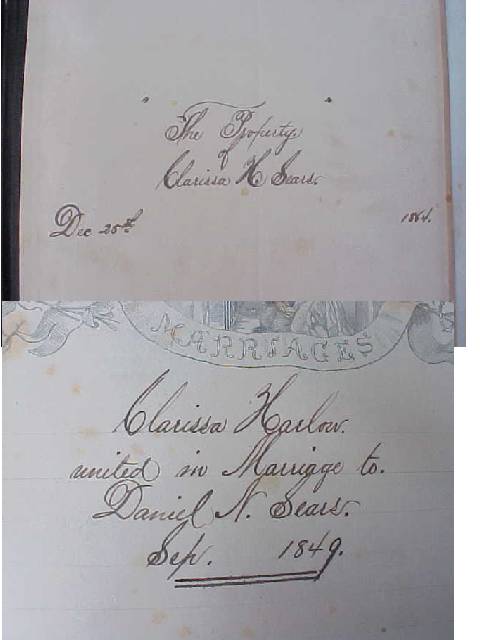 " The Property "
of
Clarissa H Sears.
Dec 25th 1864.
MARRIAGES
Clarissa Harlow.
united in Marriage to.
Daniel N. Sears.
Sep. 1849.